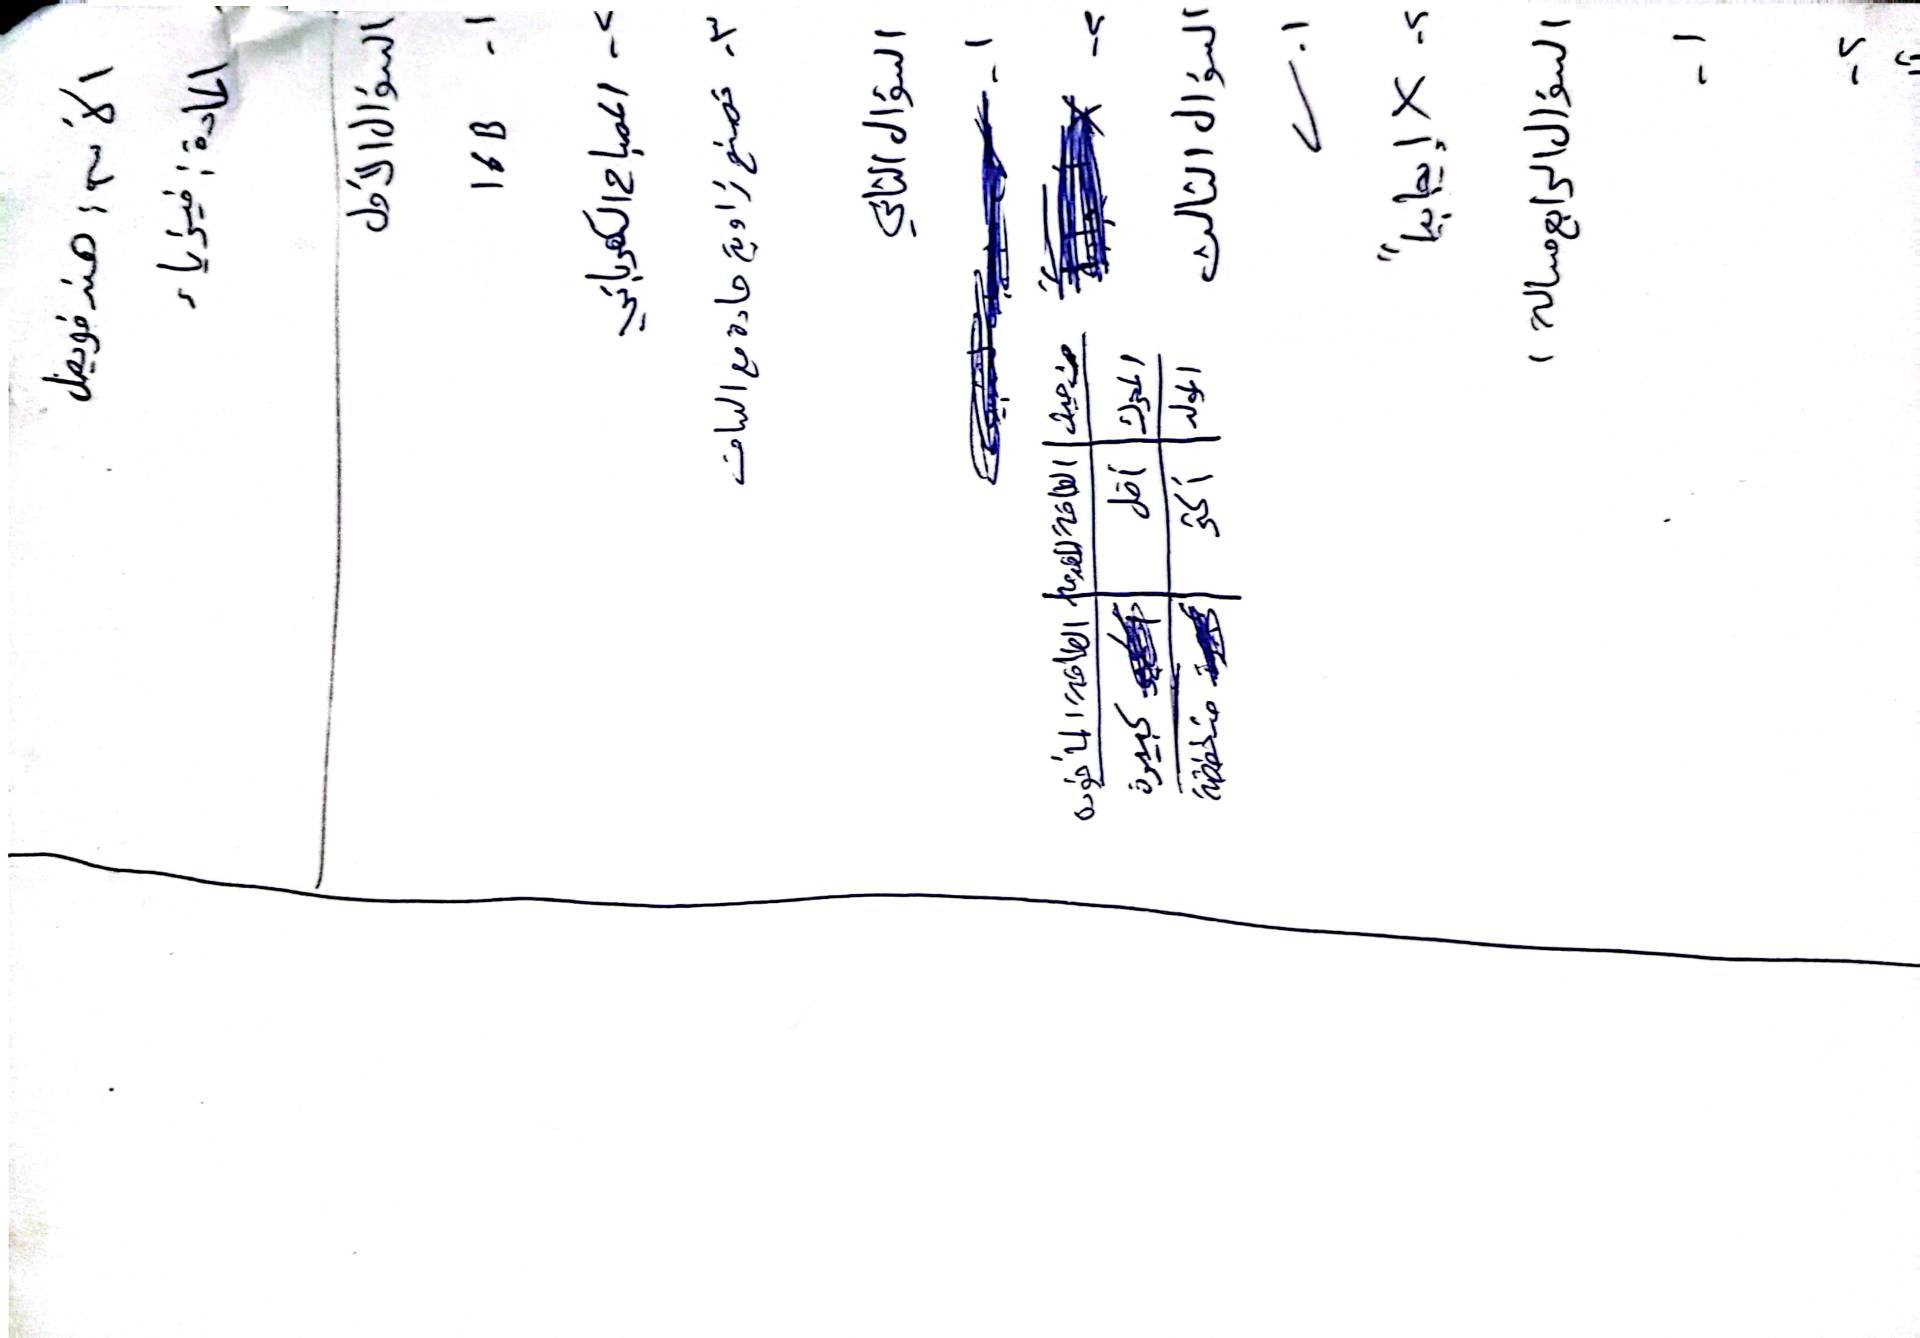 الأسم: هند فويصل
المادة: فيزياء
السؤال الأول
١- 16B
٢- المصباح الكهربائي
٣- تصنع زاوية حادة مع السالب
السؤال الثاني
١-
٢-
من حيث | الطاقة الحركية | الطاقة المأخوذة
المحرك | أقل | كبيرة
المولد | أكثر | منخفضة
السؤال الثالث
١. ✓
٢- X إيجابياً
السؤال الرابع مسألة:
١-
٢-